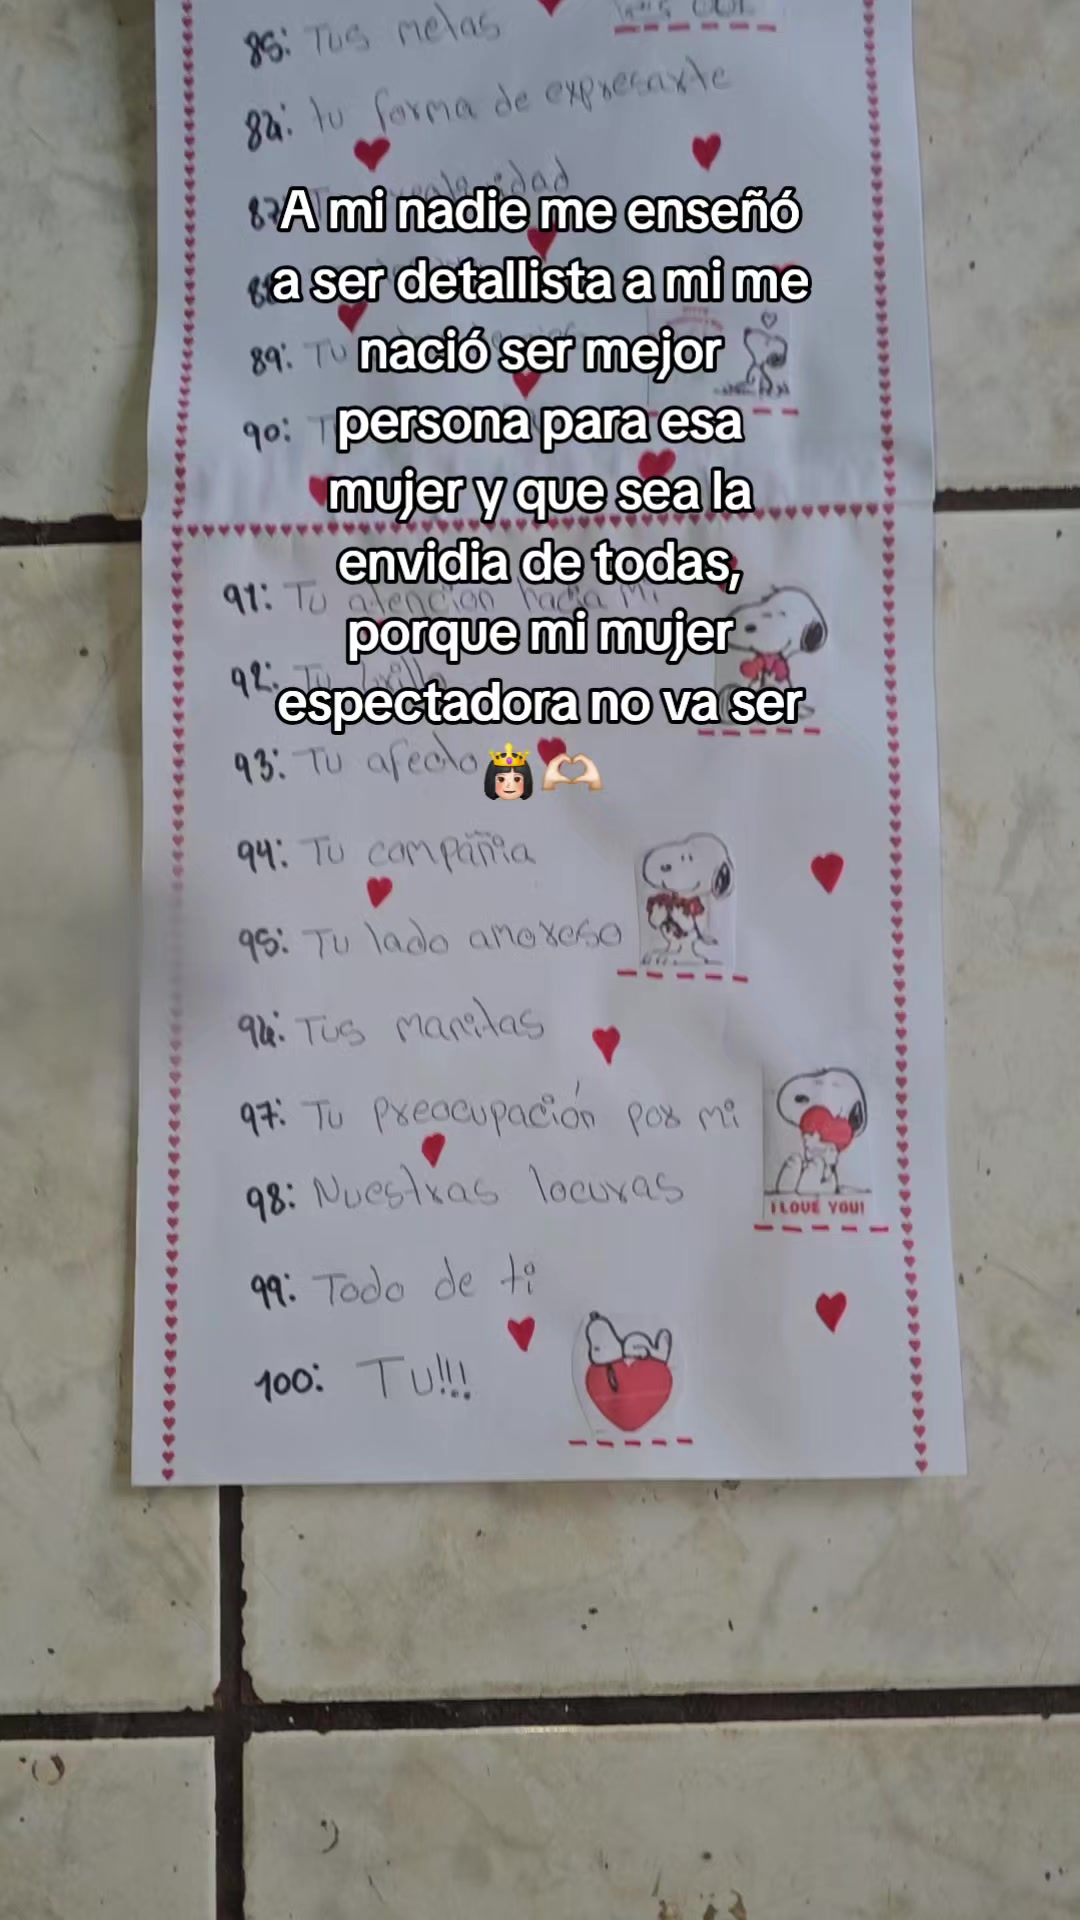 85: Tus melas
86: tu forma de expresarte
87
A mi nadie me enseñó
a ser detallista a mi me
89: Tu
nació ser mejor
90:
persona para esa
mujer y que sea la
envidia de todas,
91: Tu atencion hacia mi
porque mi mujer
92: Tu brillo
espectadora no va ser
93: Tu afecto
👸🏻🫶🏻
94: Tu compañia
95: Tu lado amoroso
96: Tus manitas
97: Tu preocupación por mi
98: Nuestras locuras
I LOVE YOU!
99: Todo de ti
100: Tu!!!